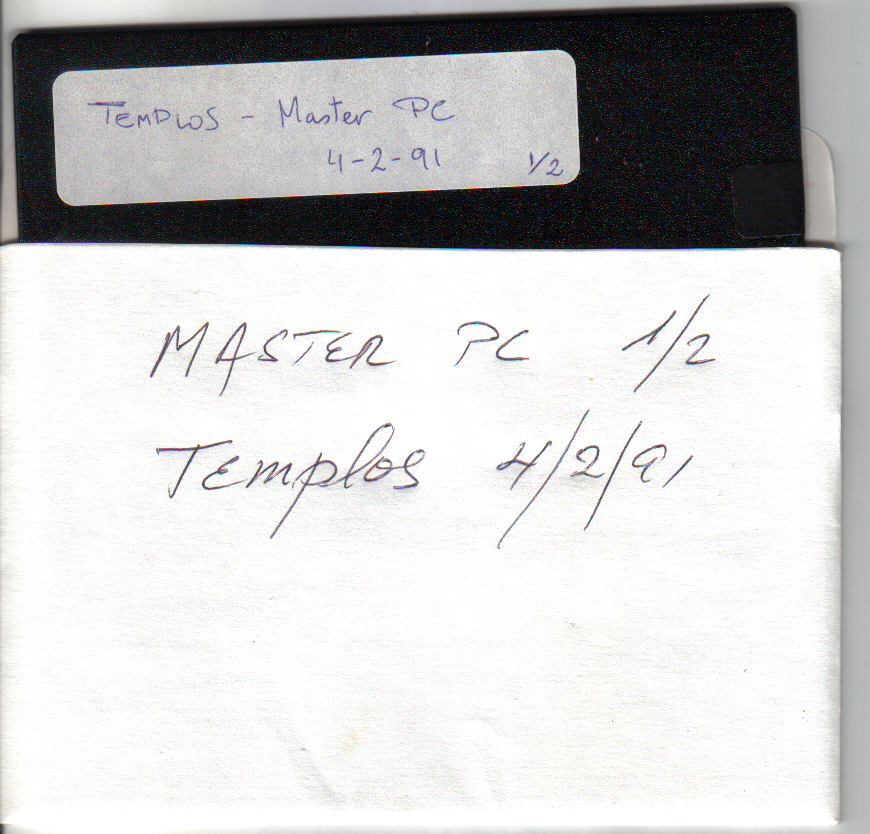 TEMPLOS - Master PC
4-2-91 1/2
MASTER PC 1/2
Templos 4/2/91